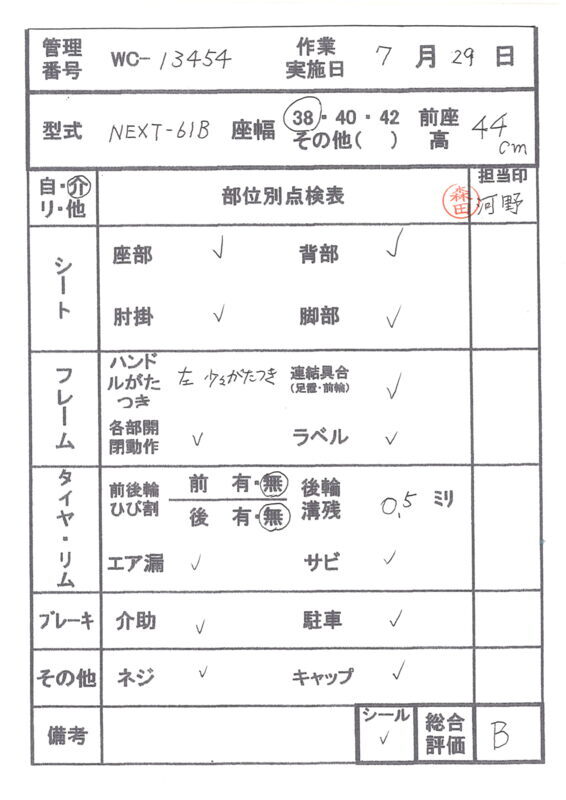 管理番号 WC-13454 作業実施日 7月29日
型式 NEXT-61B 座幅 38・40・42 その他( ) 前座高 44cm
自・介 リ・他 部位別点検表 担当印
森田 河野
シート 座部 ✓ 背部 ✓
肘掛 ✓ 脚部 ✓
フレーム ハンドルがたつき 左 少々がたつき 連結具合 (足置・前輪) ✓
各部開閉動作 ✓ ラベル ✓
タイヤ・リム 前後輪ひび割 前 有・無 後輪溝残 0.5 ミリ
後 有・無
エア漏 ✓ サビ ✓
ブレーキ 介助 ✓ 駐車 ✓
その他 ネジ ✓ キャップ ✓
備考 シール ✓ 総合評価 B